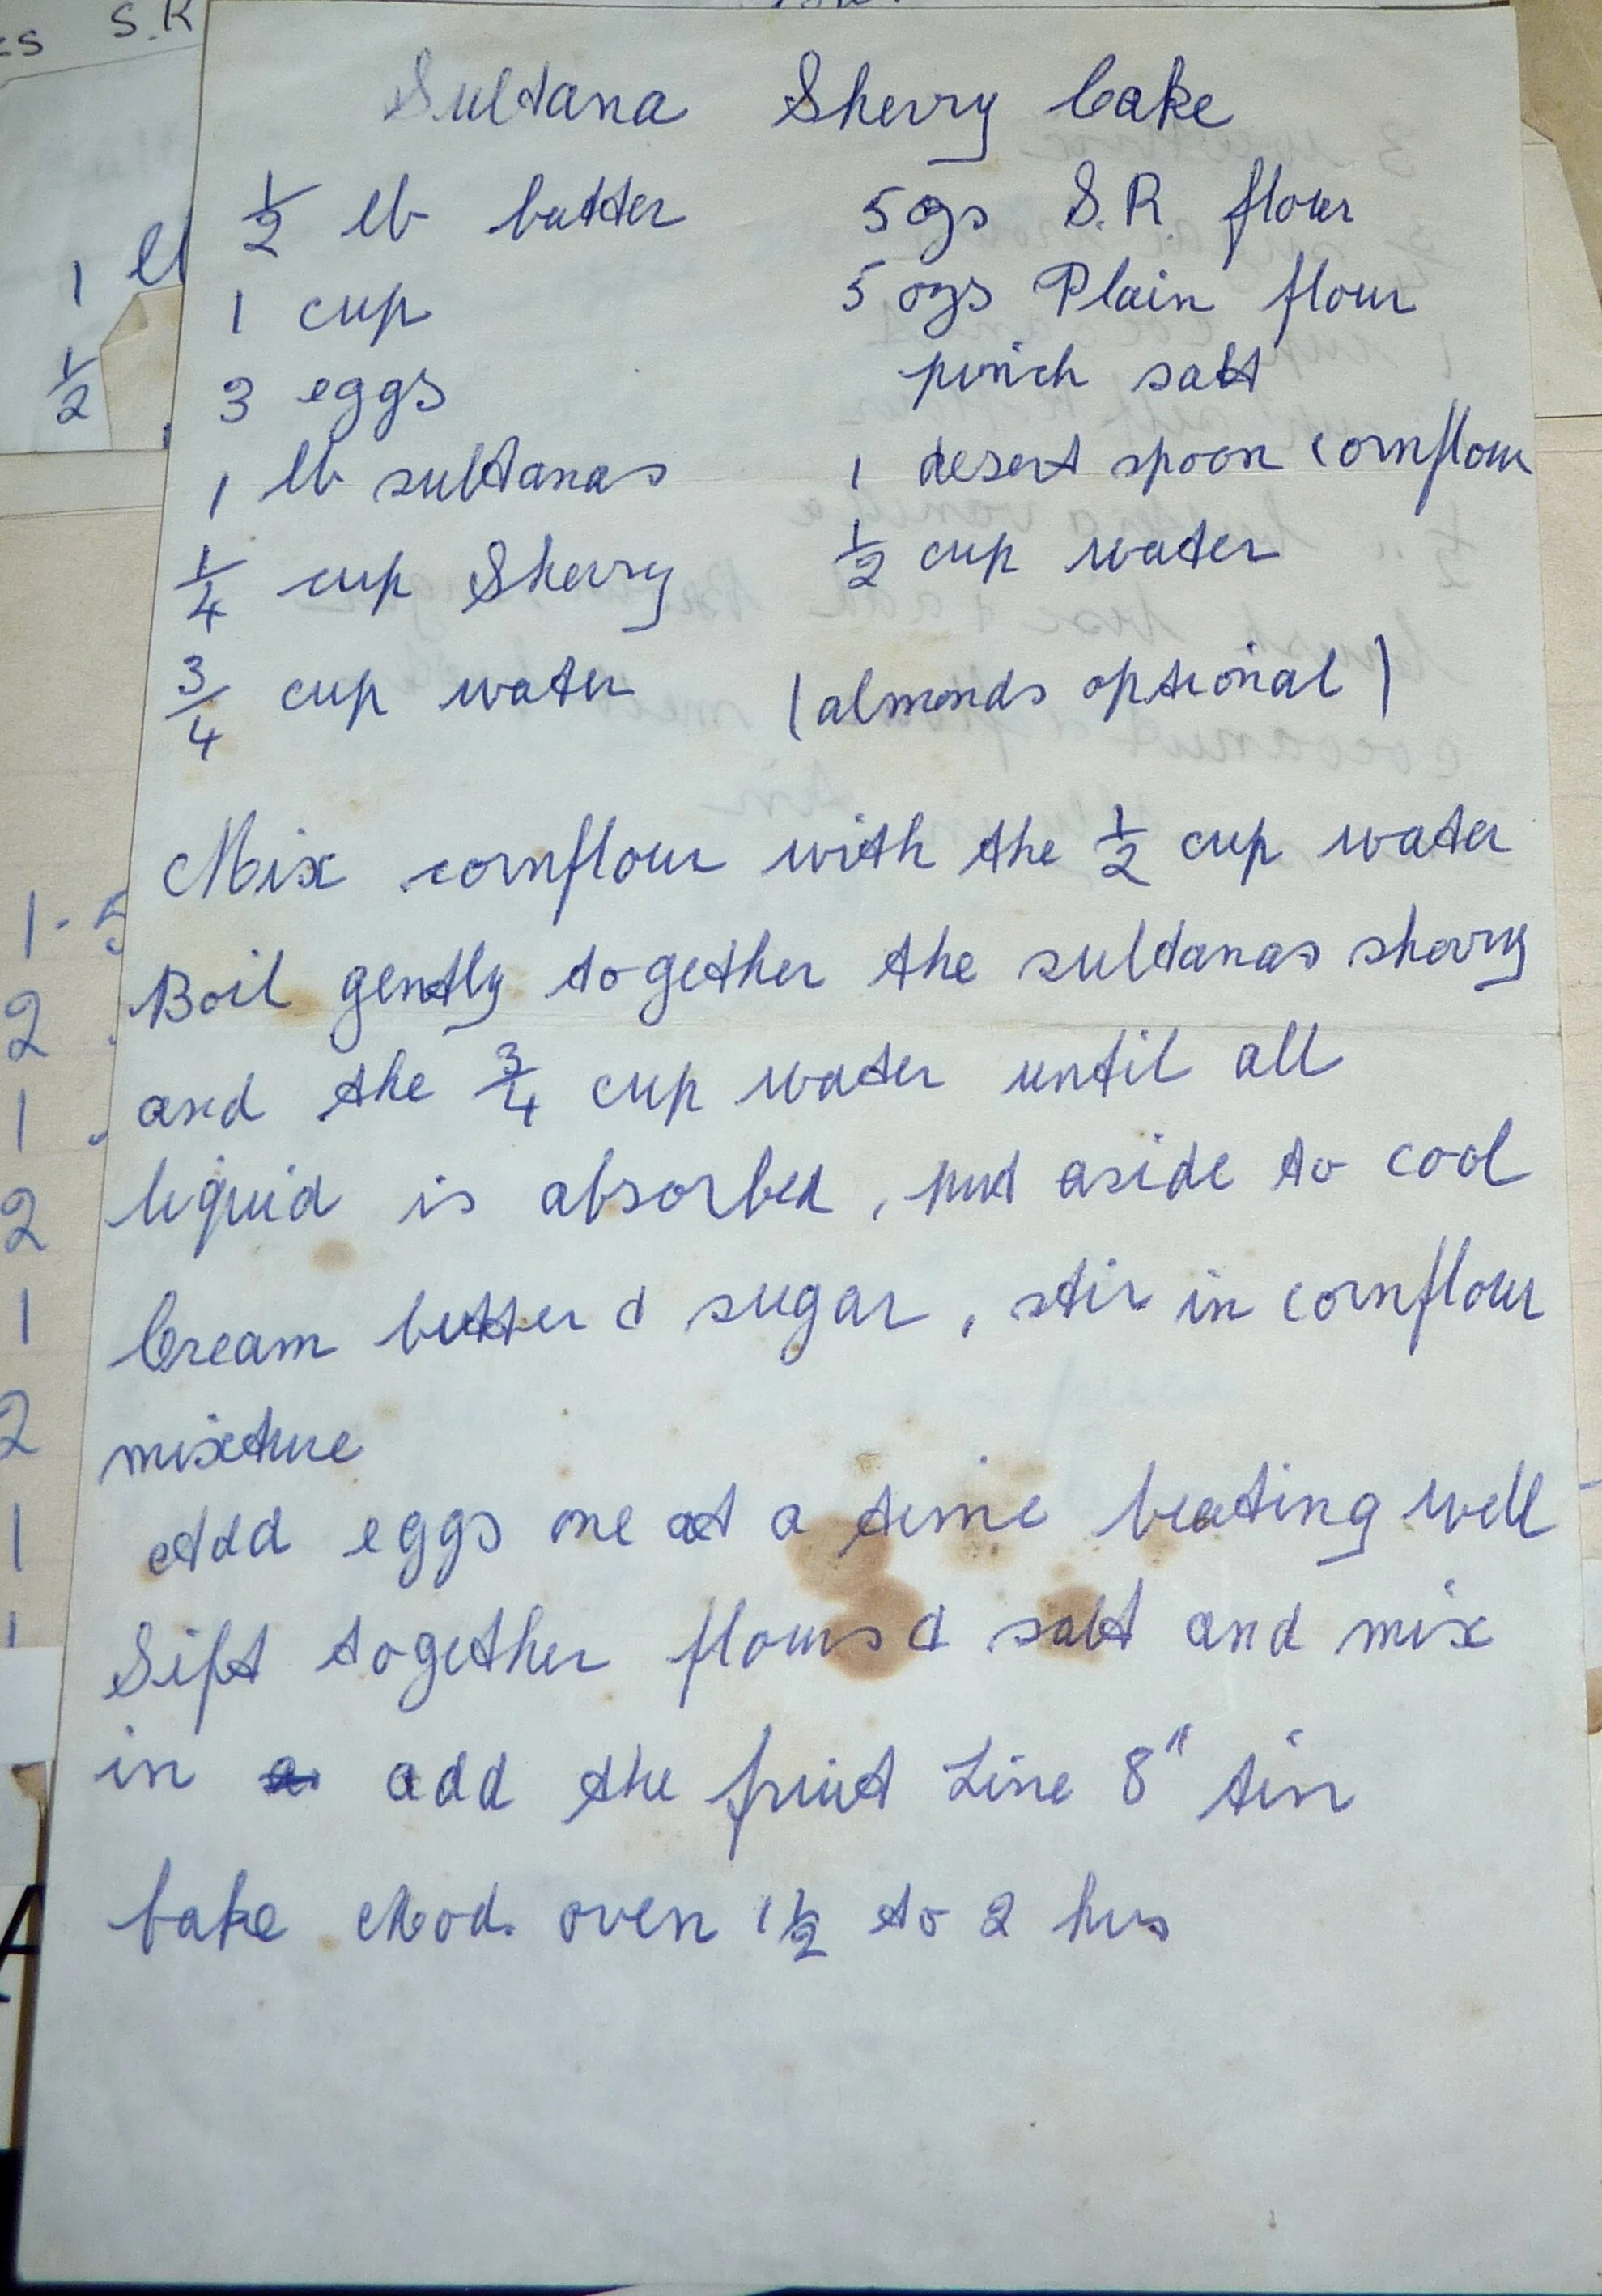 Sultana Sherry Cake
1/2 lb butter
1 cup
3 eggs
1 lb sultanas
1/4 cup Sherry
3/4 cup water
5 ozs S.R. flour
5 ozs Plain flour
pinch salt
1 desert spoon cornflour
1/2 cup water
(almonds optional)
Mix cornflour with the 1/2 cup water
Boil gently together the sultanas sherry
and the 3/4 cup water until all
liquid is absorbed, put aside to cool
Cream butter & sugar, stir in cornflour
mixture
Add eggs one at a time beating well
Sift together flours & salt and mix
in add the fruit Line 8" tin
bake Mod. oven 1 1/2 to 2 hrs